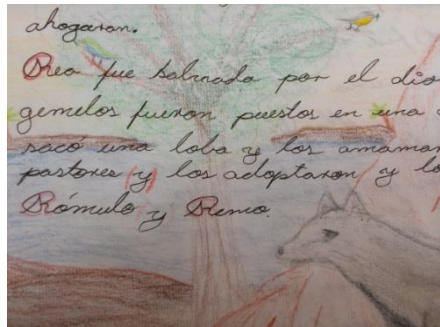 ahogaran.
Rea fue salvada por el dios
gemelos fueron puestos en una
sacó una loba y los amaman
pastores y los adoptaron y lo
Rómulo y Remo.